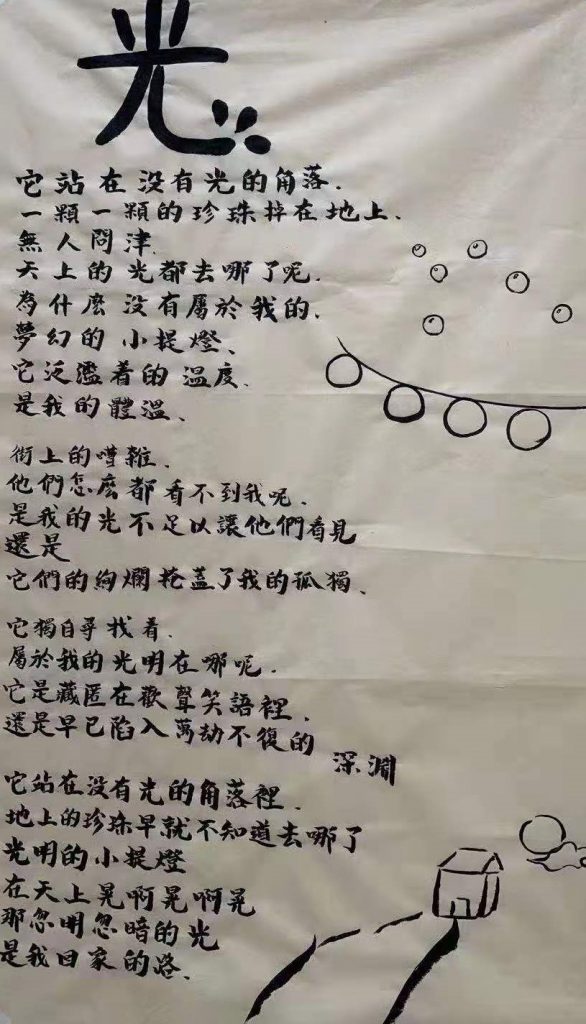 光
它站在没有光的角落.
一顆一顆的珍珠掉在地上.
無人問津.
天上的光都去哪了呢.
為什麽没有屬於我的.
夢幻的小提燈、
它泛濫着的温度.
是我的體温、
街上的嘈雜.
他們怎麽都看不到我呢.
是我的光不足以讓他們看見
還是
它們的绚爛掩蓋了我的孤獨、
它獨自尋找着.
屬於我的光明在哪呢.
它是藏匿在歡聲笑語裡.
還是早已陷入萬劫不復的
深淵
它站在没有光的角落裡.
地上的珍珠早就不知道去哪了
光明的小提燈
在天上晃啊晃啊晃
那忽明忽暗的光
是我回家的路、